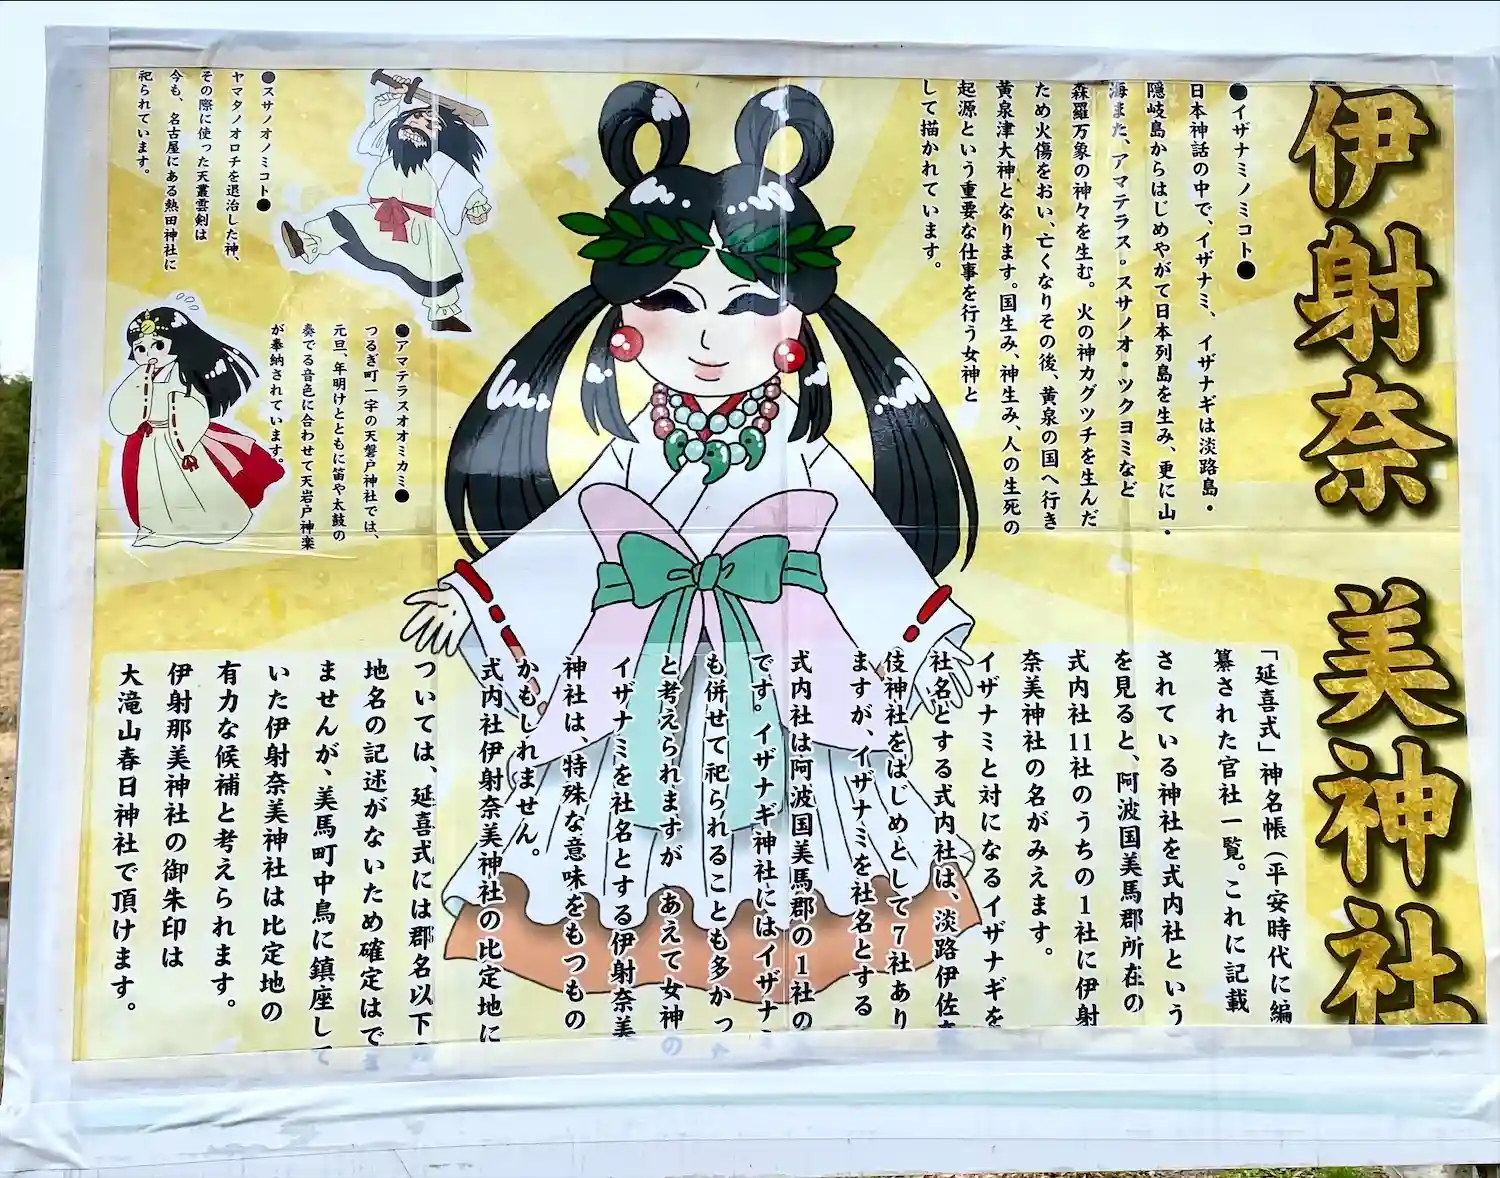 伊射奈美神社
●イザナミノミコト●
日本神話の中で、イザナミ、イザナギは淡路島・
隠岐島からはじめやがて日本列島を生み、更に山・
海また、アマテラス・スサノオ・ツクヨミなど
森羅万象の神々を生む。火の神カグツチを生んだ
ため火傷をおい、亡くなりその後、黄泉の国へ行き
黄泉津大神となります。国生み、神生み、人の生死の
起源という重要な仕事を行う女神と
して描かれています。
●スサノオノミコト●
ヤマタノオロチを退治した神、
その際に使った天叢雲剣は
今も、名古屋にある熱田神社に
祀られています。
●アマテラスオオミカミ●
つるぎ町一宇の天磐戸神社では、
元旦、年明けとともに笛や太鼓の
奏でる音色に合わせて天岩戸神楽
が奉納されています。
「延喜式」神名帳(平安時代に編
纂された官社一覧。これに記載
されている神社を式内社という)
を見ると、阿波国美馬郡所在の
式内社11社のうちの1社に伊射
奈美神社の名がみえます。
イザナミと対になるイザナギを
社名とする式内社は、淡路伊佐奈
伎神社をはじめとして7社あり
ますが、イザナミを社名とする
式内社は阿波国美馬郡の1社の
です。イザナギ神社にはイザナミ
も併せて祀られることも多かっ
と考えられますが、あえて女神の
イザナミを社名とする伊射奈美
神社は、特殊な意味をもつもの
かもしれません。
式内社伊射奈美神社の比定地に
ついては、延喜式には郡名以下の
地名の記述がないため確定はで
ませんが、美馬町中鳥に鎮座して
いた伊射奈美神社は比定地の
有力な候補と考えられます。
伊射那美神社の御朱印は
大滝山春日神社で頂けます。